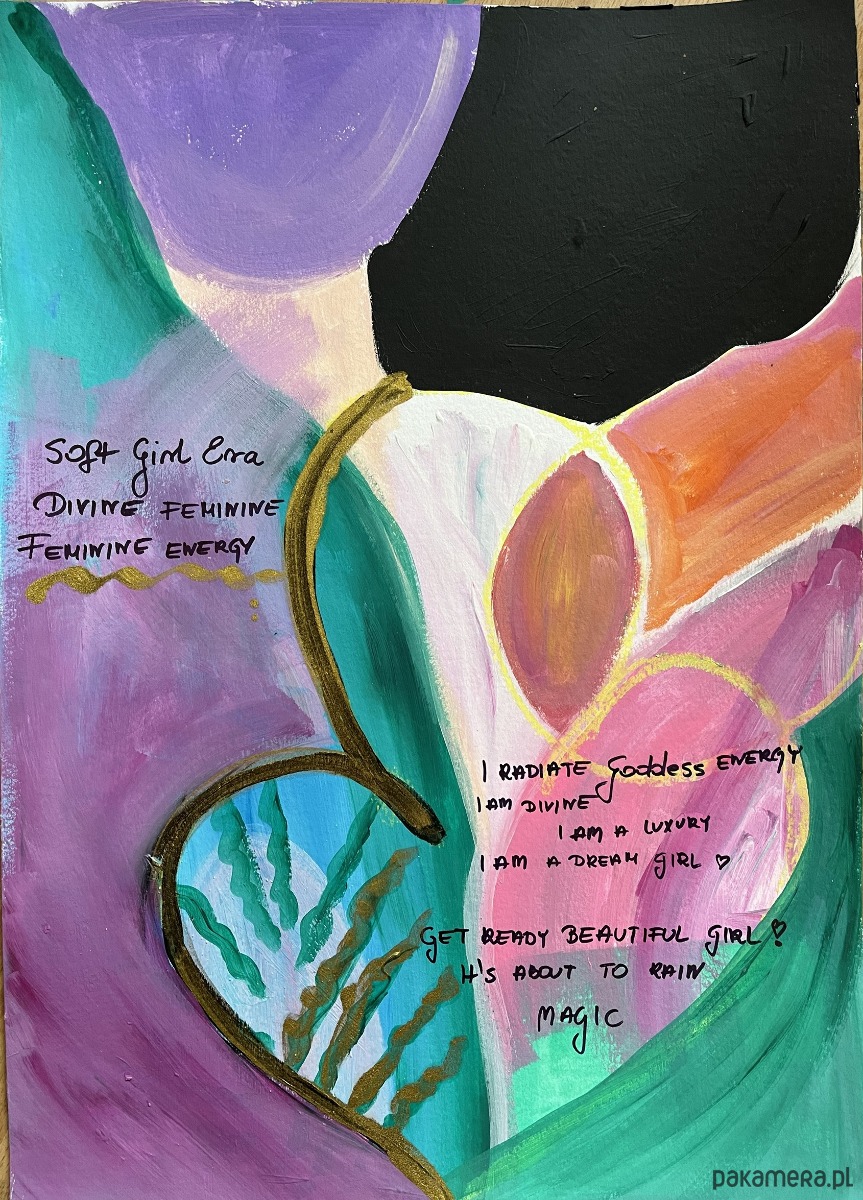 Soft Girl Era
DIVINE FEMININE
FEMININE ENERGY
I RADIATE Goddess ENERGY
I AM DIVINE
I AM A LUXURY
I AM A DREAM GIRL ♡
GET READY BEAUTIFUL GIRL!
It's ABOUT TO RAIN
MAGIC
pakamera.pl